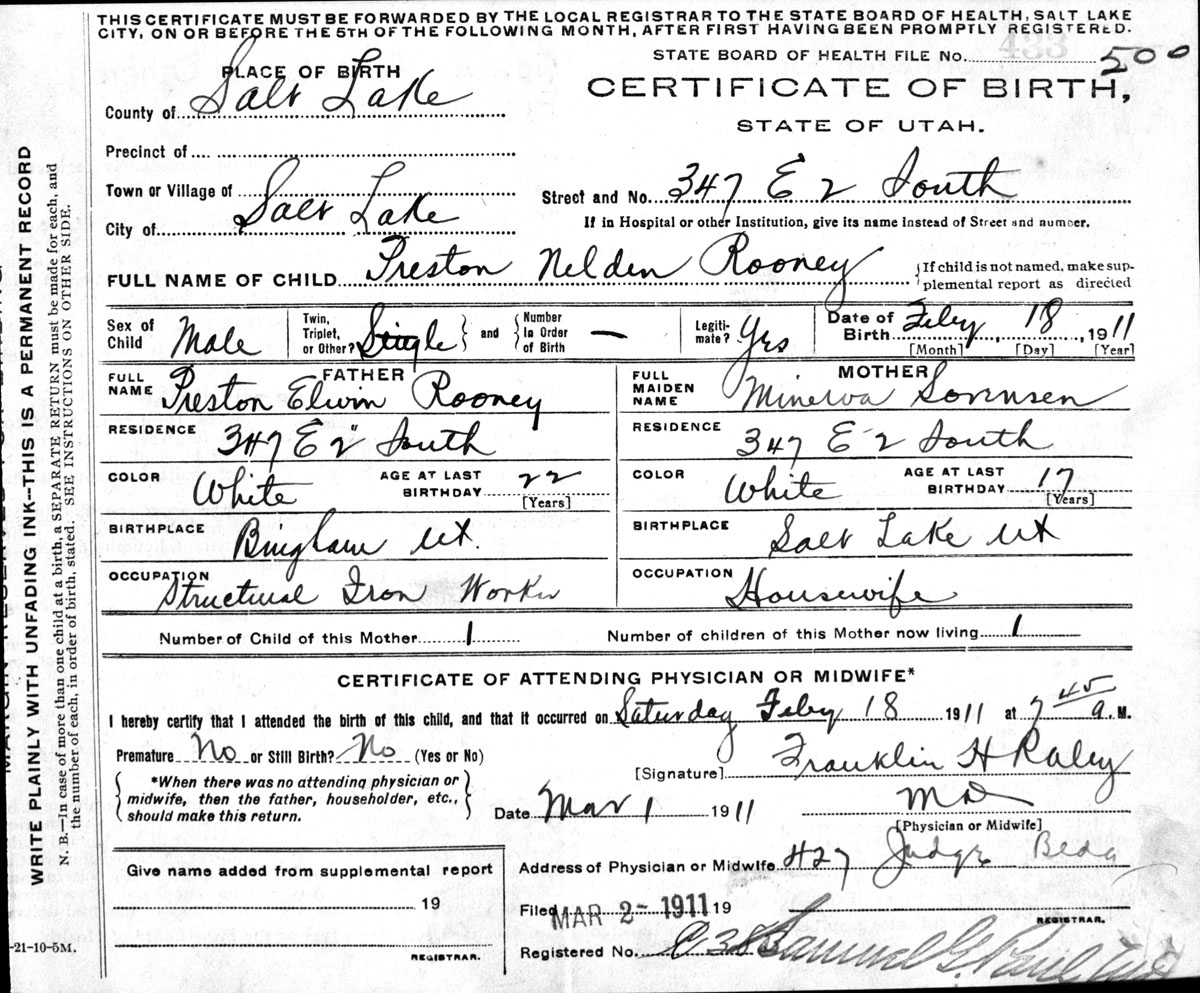 THIS CERTIFICATE MUST BE FORWARDED BY THE LOCAL REGISTRAR TO THE STATE BOARD OF HEALTH, SALT LAKE
CITY, ON OR BEFORE THE 5TH OF THE FOLLOWING MONTH, AFTER FIRST HAVING BEEN PROMPTLY REGISTERED.
433
STATE BOARD OF HEALTH FILE No. 500
PLACE OF BIRTH
CERTIFICATE OF BIRTH,
County of Salt Lake
STATE OF UTAH.
Precinct of
Town or Village of
Street and No. 347 E 2 South
City of Salt Lake
If in Hospital or other Institution, give its name instead of Street and number.
FULL NAME OF CHILD Preston Nelden Rooney
If child is not named, make supplemental report as directed
Sex of Child Male
Twin, Triplet, or Other? Single and Number in Order of Birth —
Legitimate? Yes
Date of Birth Feby 18, 1911
[Month] [Day] [Year]
FATHER
FULL NAME Preston Elwin Rooney
MOTHER
FULL MAIDEN NAME Minerva Sorensen
RESIDENCE 347 E 2" South
RESIDENCE 347 E 2 South
COLOR White AGE AT LAST BIRTHDAY 22 [Years]
COLOR White AGE AT LAST BIRTHDAY 17 [Years]
BIRTHPLACE Bingham Ut.
BIRTHPLACE Salt Lake Ut
OCCUPATION Structural Iron Worker
OCCUPATION Housewife
Number of Child of this Mother 1 Number of children of this Mother now living 1
CERTIFICATE OF ATTENDING PHYSICIAN OR MIDWIFE*
I hereby certify that I attended the birth of this child, and that it occurred on Saturday Feby 18 1911 at 7 45 a. M.
Premature No or Still Birth? No (Yes or No)
[Signature] Franklin H Raley
*When there was no attending physician or
midwife, then the father, householder, etc.,
should make this return.
Date Mar 1 1911
MD
[Physician or Midwife]
Address of Physician or Midwife 427 Judge
Give name added from supplemental report
19
REGISTRAR.
Filed MAR 2- 1911 19
REGISTRAR.
Registered No. Samuel G. Paul
-21-10-5M.
WRITE PLAINLY WITH UNFADING INK--THIS IS A PERMANENT RECORD
N. B.—In case of more than one child at a birth, a SEPARATE RETURN must be made for each, and
the number of each, in order of birth, stated. SEE INSTRUCTIONS ON OTHER SIDE.